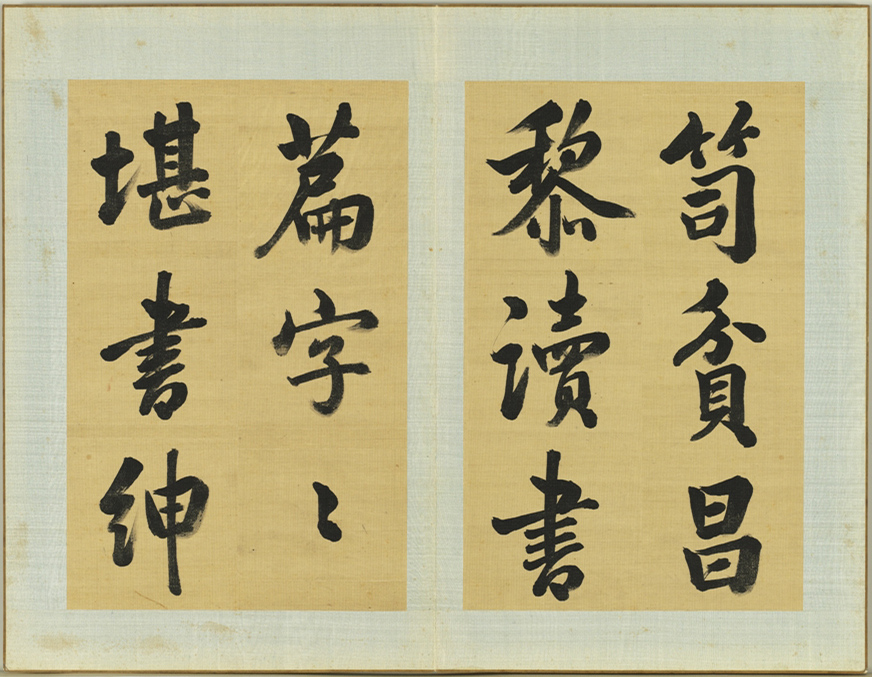 笥貧昌
黎讀書
篇字〻
堪書紳